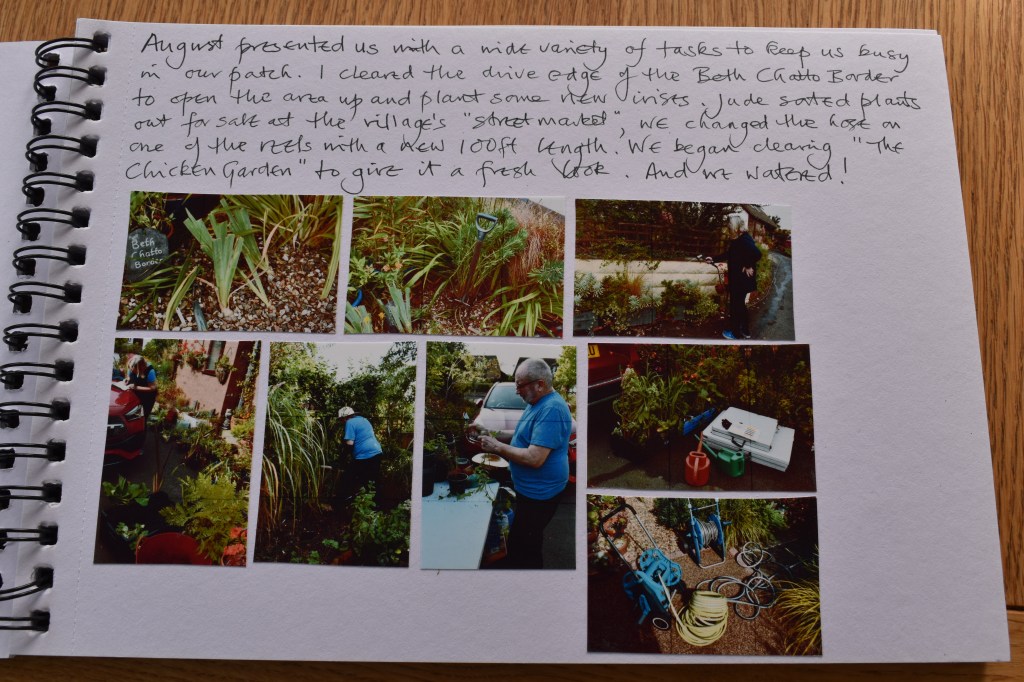 August presented us with a wide variety of tasks to keep us busy
in our patch. I cleared the drive edge of the Beth Chatto Border
to open the area up and plant some new irises. Jude sorted plants
out for sale at the village's "street market", we changed the hose on
one of the reels with a new 100ft length. We began clearing "The
Chicken Garden" to give it a fresh look. And we watered!
Beth
Chatto
Border